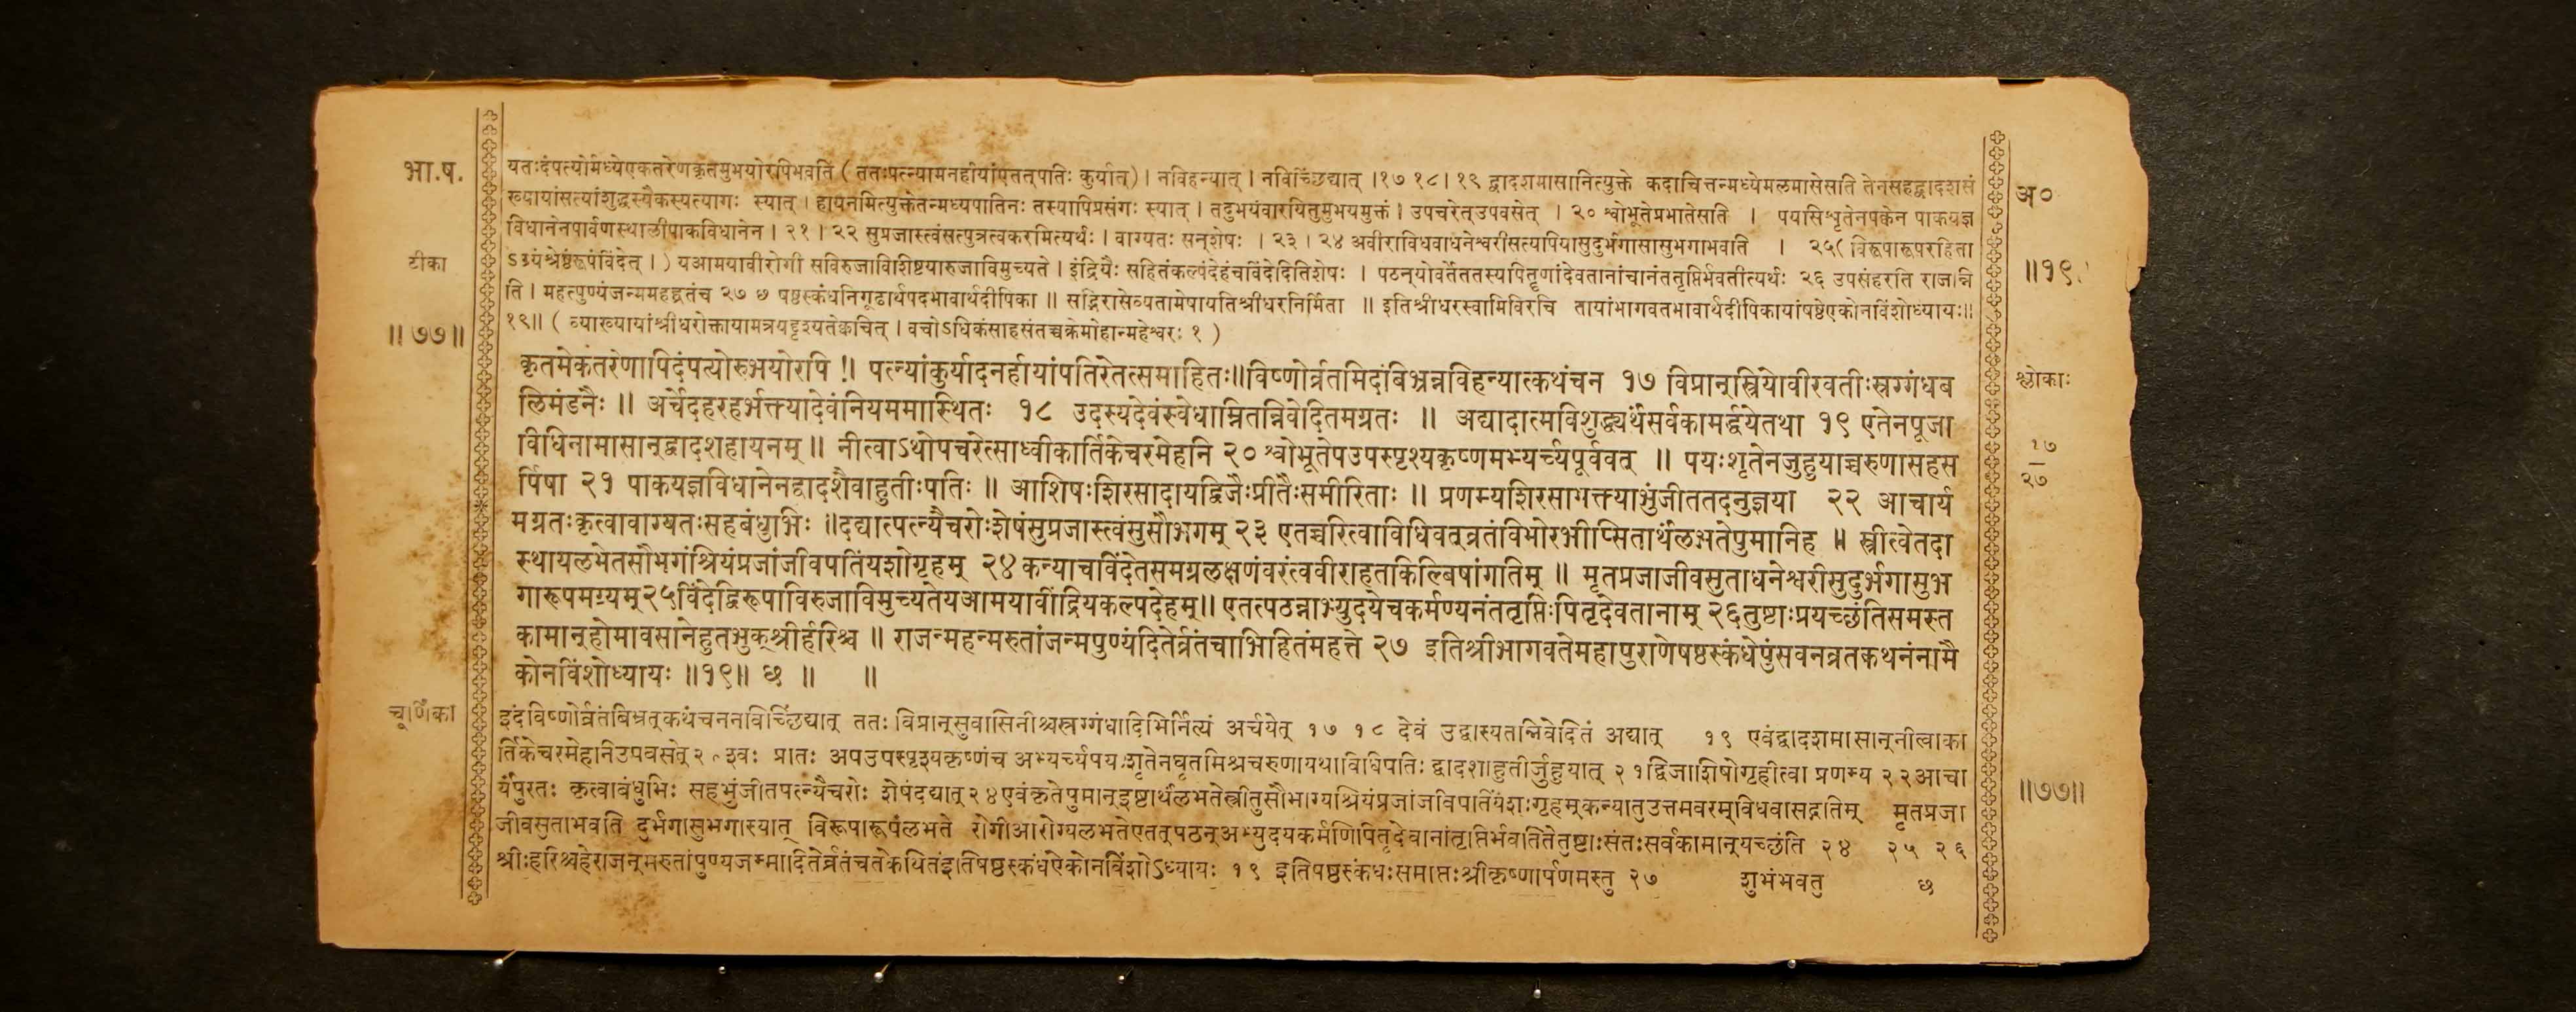 भा.ष.
यतःदंपत्योर्मध्येएकतरेणकृतमुभयोरपिभवति ( ततःपत्न्यामनर्हायांएतत्पतिः कुर्यात्) । नविहन्यात् । नविच्छिंद्यात् ।१७ १८। १९ द्वादशमासानित्युक्ते कदाचित्तन्मध्येमलमासेसति तेनसहद्वादशसं
ख्यायांसत्यांशुद्धस्यैकस्यत्यागः स्यात् । हायनमित्युक्तेतन्मध्यपातिनः तस्यापिप्रसंगः स्यात् । तदुभयंवारयितुमुभयमुक्तं । उपचरेत्उपवसेत् । २० श्वोभूतेप्रभातेसति । पयसिशृतेनपक्वेन पाकयज्ञ
विधानेनपार्वणस्थालीपाकविधानेन । २१ । २२ सुप्रजास्त्वंसत्पुत्रत्वकरमित्यर्थः । वाग्यतः सन्शेषः । २३ । २४ अवीराविधवाधनेश्वरीसत्यपियासुदुर्भगासासुभगाभवति । २५( विरूपारूपरहिता
ऽग्र्यंश्रेष्ठंरूपंविंदेत् । ) यआमयावीरोगी सविरुजाविशिष्टयारुजाविमुच्यते । इंद्रियैः सहितंकल्पंदेहंचविंदेदितिशेषः । पठन्योवर्तेततस्यपितॄणांदेवतानांचानंततृप्तिर्भवतीत्यर्थः २६ उपसंहरति राजन्नि
ति । महत्पुण्यंजन्ममहद्व्रतंच २७ छ षष्ठस्कंधनिगूढार्थपदभावार्थदीपिका ॥ सद्भिरासेव्यतामेषायतिश्रीधरनिर्मिता ॥ इतिश्रीधरस्वामिविरचि तायांभागवतभावार्थदीपिकायांषष्ठेएकोनविंशोध्यायः॥
१९॥ ( व्याख्यायांश्रीधरोक्तायामत्रयद्दृश्यतेक्वचित् । वचोऽधिकंसाहसंतच्चक्रेमोहान्महेश्वरः १ )
टीका
॥ ७७॥
अ०
॥१९
कृतमेकतरेणापिदंपत्योरुभयोरपि ॥ पत्न्यांकुर्यादनर्हायांपतिरेतत्समाहितः॥विष्णोर्व्रतमिदंबिभ्रन्नविहन्यात्कथंचन १७ विप्रान्स्त्रियोवीरवतीःस्रग्गंधब
लिमंडनैः ॥ अर्चेदहरहर्भक्त्यादेवंनियममास्थितः १८ उदस्यदेवंस्वेधाम्नितन्निवेदितमग्रतः ॥ अद्यादात्मविशुद्ध्यर्थंसर्वकामर्द्धयेतथा १९ एतेनपूजा
विधिनामासान्द्वादशहायनम् ॥ नीत्वाऽथोपचरेत्साध्वीकार्तिकेचरमेहनि २० श्वोभूतेपउपस्पृश्यकृष्णमभ्यर्च्यपूर्ववत् ॥ पयःशृतेनजुहुयाच्चरुणासहस
र्पिषा २१ पाकयज्ञविधानेनद्वादशैवाहुतीःपतिः ॥ आशिषःशिरसादायद्विजैःप्रीतैःसमीरिताः ॥ प्रणम्यशिरसाभक्त्याभुंजीततदनुज्ञया २२ आचार्य
मग्रतःकृत्वावाग्यतःसहबंधुभिः ॥दद्यात्पत्न्यैचरोःशेषंसुप्रजास्त्वंसुसौभगम् २३ एतच्चरित्वाविधिवद्व्रतंविभोरभीप्सितार्थंलभतेपुमानिह ॥ स्त्रीत्वेतदा
स्थायलभेतसौभगंश्रियंप्रजांजीवपतिंयशोगृहम् २४ कन्याचविंदेतसमग्रलक्षणंवरंत्ववीराहतकिल्बिषांगतिम् ॥ मृतप्रजाजीवसुताधनेश्वरीसुदुर्भगासुभ
गारूपमग्र्यम्२५विंदेद्विरूपाविरुजाविमुच्यतेयआमयावींद्रियकल्पदेहम्॥ एतत्पठन्नाभ्युदयेचकर्मण्यनंततृप्तिःपितृदेवतानाम् २६तुष्टाःप्रयच्छंतिसमस्त
कामान्होमावसानेहुतभुक्श्रीर्हरिश्च ॥ राजन्महन्मरुतांजन्मपुण्यंदितेर्व्रतंचाभिहितंमहत्ते २७ इतिश्रीभागवतेमहापुराणेषष्ठस्कंधेपुंसवनव्रतकथनंनामै
कोनविंशोध्यायः ॥१९॥ छ ॥ ॥
श्लोकाः
१७
२७
चूर्णिका
इदंविष्णोर्व्रतंबिभ्रत्कथंचननविच्छिंद्यात् ततः विप्रान्सुवासिनीश्चस्रग्गंधादिभिर्नित्यं अर्चयेत् १७ १८ देवं उद्वास्यतन्निवेदितं अद्यात् १९ एवंद्वादशमासान्नीत्वाका
र्तिकेचरमेहनिउपवसेत्२० श्वः प्रातः अपउपस्पृश्यकृष्णंच अभ्यर्च्यपयःशृतेनघृतमिश्रचरुणायथाविधिपतिः द्वादशाहुतीर्जुहुयात् २१द्विजाशिषोगृहीत्वा प्रणम्य २२आचा
र्यंपुरतः कृत्वाबंधुभिः सहभुंजीतपत्न्यैचरोः शेषंदद्यात्२४एवंकृतेपुमान्इष्टार्थंलभतेस्त्रीतुसौभाग्यश्रियंप्रजांजीवपतिंयशःगृहम्कन्यातुउत्तमवरम्विधवासद्गतिम् मृतप्रजा
जीवसुताभवति दुर्भगासुभगास्यात् विरूपारूपंलभते रोगीआरोग्यंलभतेएतत्पठन्अभ्युदयकर्मणिपितृदेवानांतृप्तिर्भवतितेतुष्टाःसंतःसर्वकामान्यच्छंति २४ २५ २६
श्रीःहरिश्चहेराजन्मरुतांपुण्यजन्मदितेर्व्रतंचतेकथितंइतिषष्ठस्कंधेएकोनविंशोऽध्यायः १९ इतिषष्ठस्कंधःसमाप्तःश्रीकृष्णार्पणमस्तु २७ शुभंभवतु छ
॥७७॥